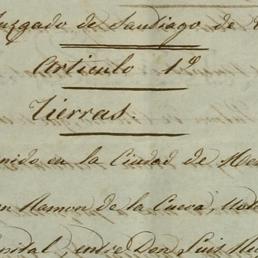 Juzgado de Santiago de
Articulo 1º
Tierras.
en la Ciudad de
Ramon de la Cueva,
entre Don Luis